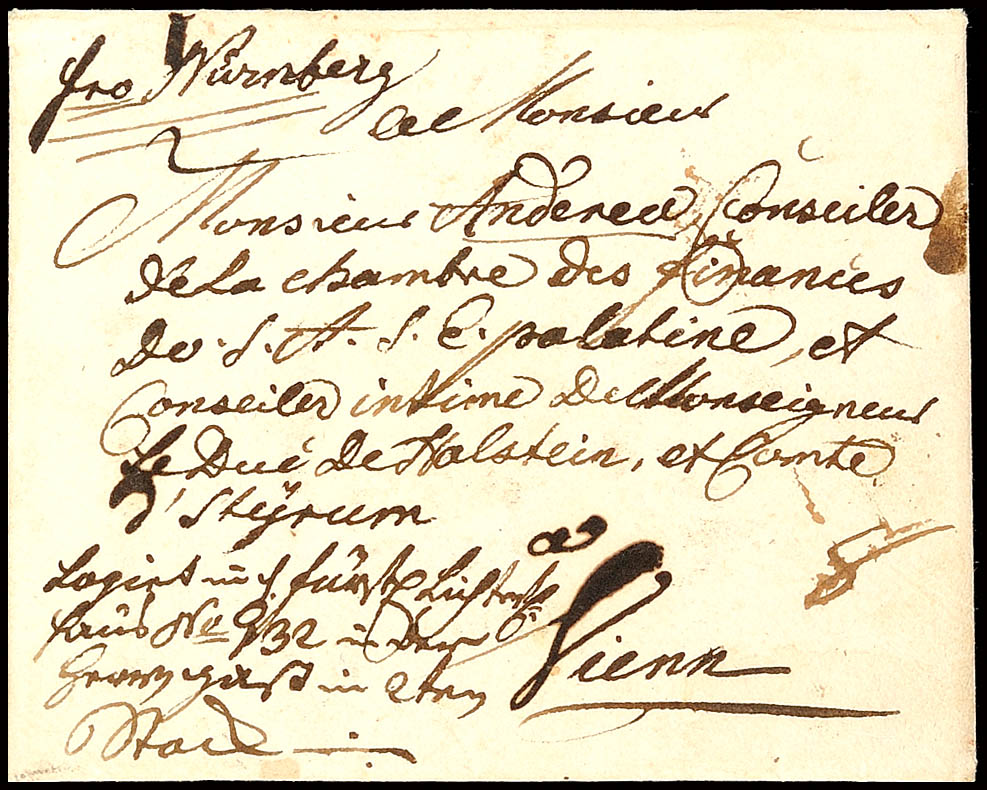 fro Nürnberg
a Monsieur
Monsieur Anderea Conseiler
de la chambre des finances
De. S. A. S. E. palatine, et
Conseiler intime De Monseigneur
Le Duc De Holstein, et Comte
d'Styrum
a
Vienn
Logirt im f. fürstl. Lichtenst.
Haus No 232 in der
Herrn gass in 2ten
Stock